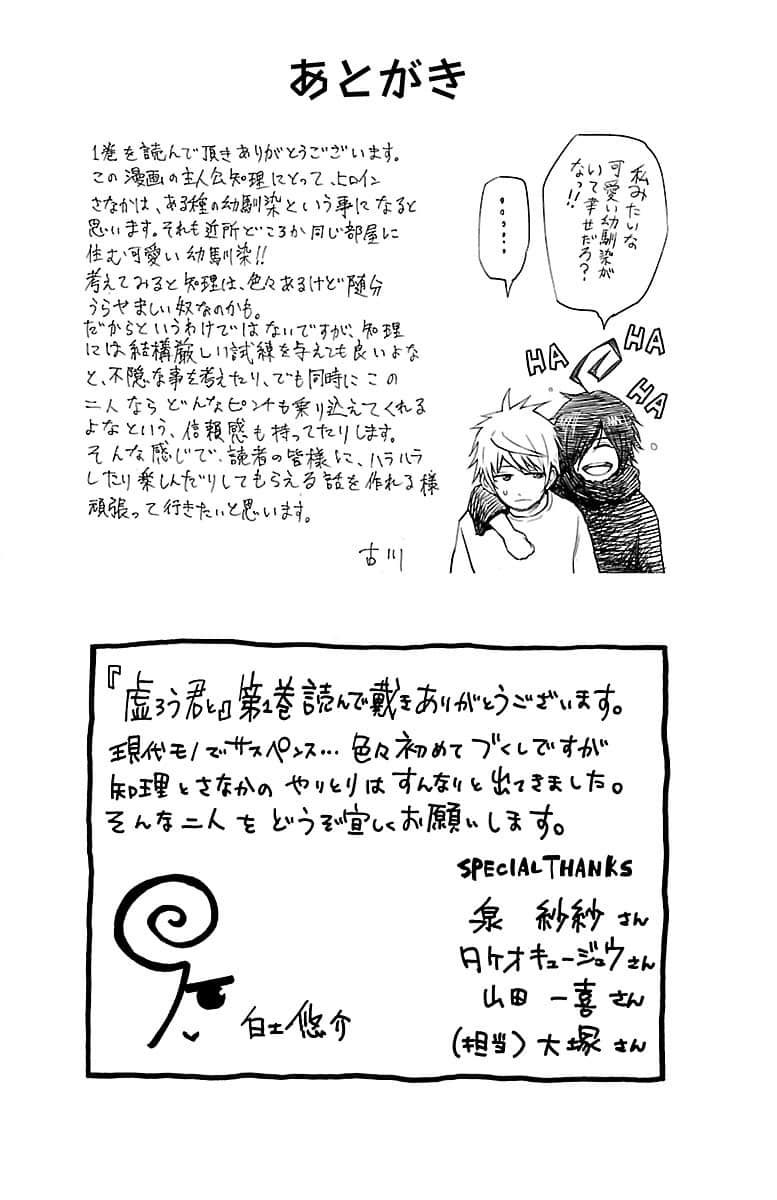 あとがき
1巻を読んで頂きありがとうございます。
この漫画の主人公知理にとって、ヒロイン
さなかは、ある種の幼馴染という事になると
思います。それも近所どころか同じ部屋に
住む可愛い幼馴染!!
考えてみると知理は、色々あるけど随分
うらやましい奴なのかも。
だからというわけではないですが、知理
には結構厳しい試練を与えても良いよな
と、不隠な事を考えたり、でも同時にこの
二人ならどんなピンチも乗り込えてくれる
よなという、信頼感も持ってたりします。
そんな感じで、読者の皆様に、ハラハラ
したり楽しんだりしてもらえる話を作れる様
頑張って行きたいと思います。
古川
私みたいな
可愛い幼馴染が
いて幸せだろ?
なっ!!
。。。。。。
HA
HA
HA
『虚ろう君と』第1巻読んで戴きありがとうございます。
現代モノでサスペンス…色々初めてづくしですが
知理とさなかのやりとりはすんなりと出てきました。
そんな二人をどうぞ宜しくお願いします。
SPECIAL THANKS
泉 紗紗さん
タケオキュージュウさん
山田 一喜さん
(担当)大塚さん
白土悠介